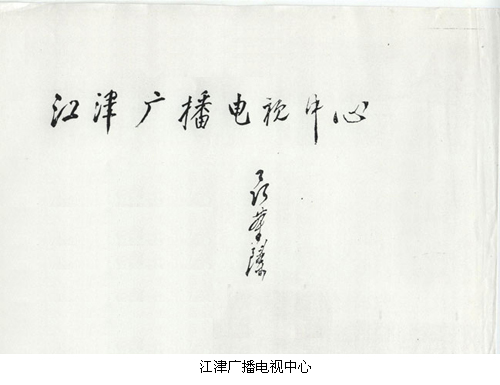 江津广播电视中心
聂荣臻
江津广播电视中心